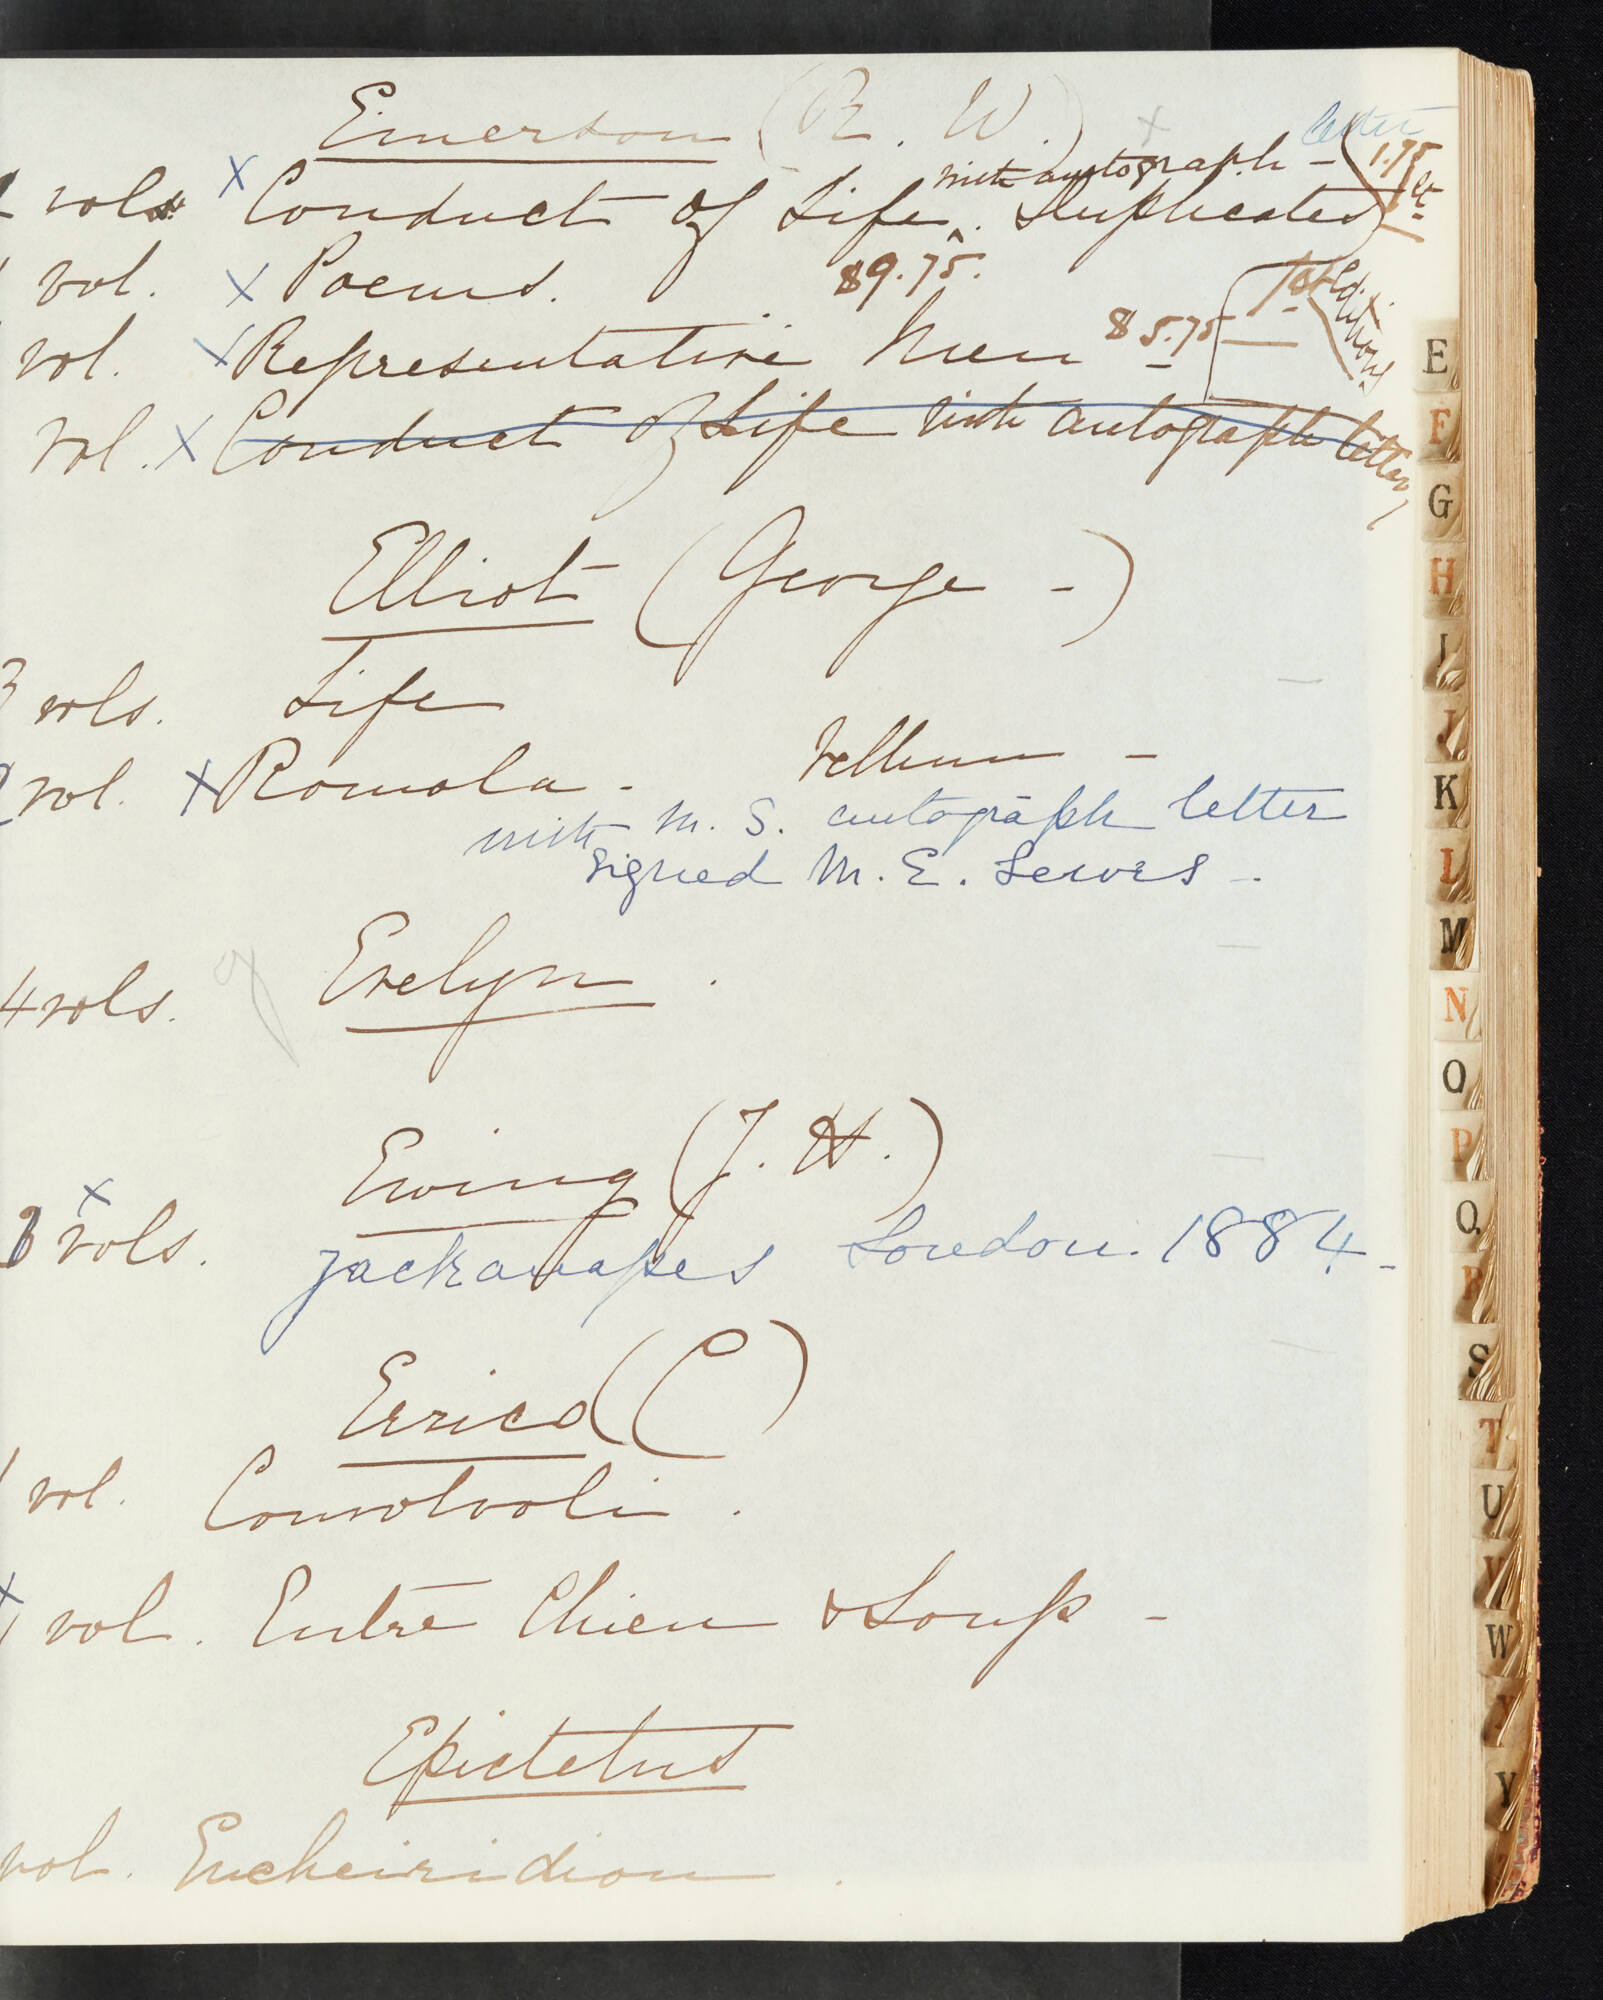 Emerson (R. W.) x letter
with autograph – 1.75 ct
vols x Conduct of Life. Duplicates
vol. x Poems. $9.75.
vol. x Representative Men $5.75 1st Editions
vol. x Conduct of Life with autograph letter
Elliot (George –)
3 vols. Life
2 vol. x Romola. vellum –
with M. S. autograph letter
signed M. E. Lewes –
4 vols. Evelyn.
Ewing (J. H.)
x vols. Jackanapes London. 1884 –
Errico (C)
1 vol. Convolvoli.
x vol. Entre Chien & Loup –
Epictetus
vol. Encheiridion.
E
F
G
H
I
J
K
L
M
N
O
P
Q
R
S
T
U
V
W
X
Y